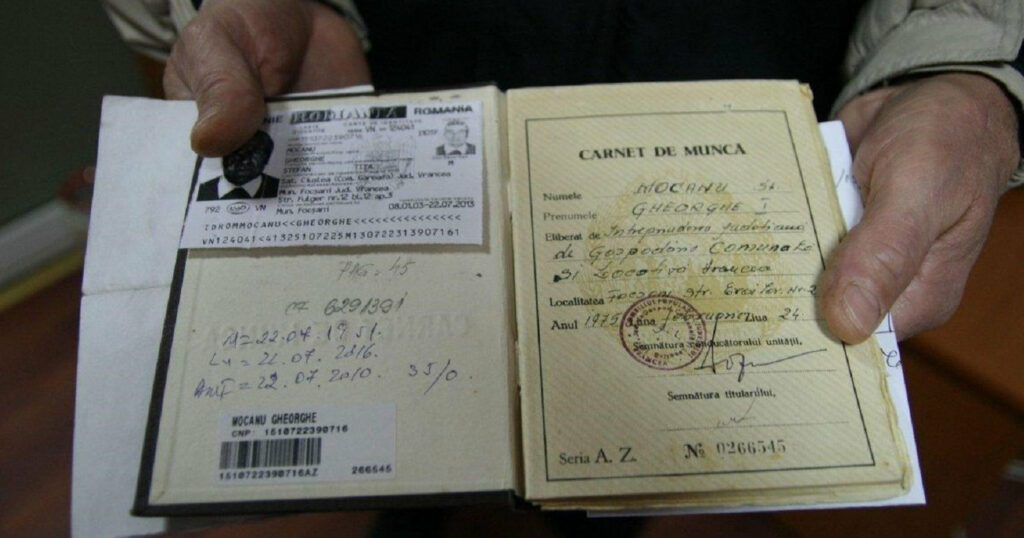 ROMANIA ROMANIA
CARTE DE IDENTITATE
VN 124041
1510722390716
MOCANU
GHEORGHE
STEFAN TITA
M
Sat. Cîmpineanca Jud. Vrancea
Mun. Focşani Jud. Vrancea
Str. Fulger nr.12 bl.12 ap.3
Mun. Focşani 08.01.03-22.07.2013
792 VN
IDROMMOCANU<<GHEORGHE<<<<<<<<<<<<<<
VN124041<41325107225M130722313907161
PAG = 45
629/391
22.07.1951.
22.07.2016.
22.07.2010. 35/0
MOCANU GHEORGHE
CNP: 1510722390716
1510722390716AZ 266545
CARNET DE MUNCĂ
Numele MOCANU St.
Prenumele GHEORGHE I
Eliberat de Intreprinderea Judeteana
de Gospodarie Comunala
Si Locativa Vrancea
Localitatea Focsani Str. Eroilor Nr. 2
Anul 1975 Luna februarie Ziua 24
Semnătura conducătorului unităţii,
Semnătura titularului,
Seria A. Z. Nº 0266545